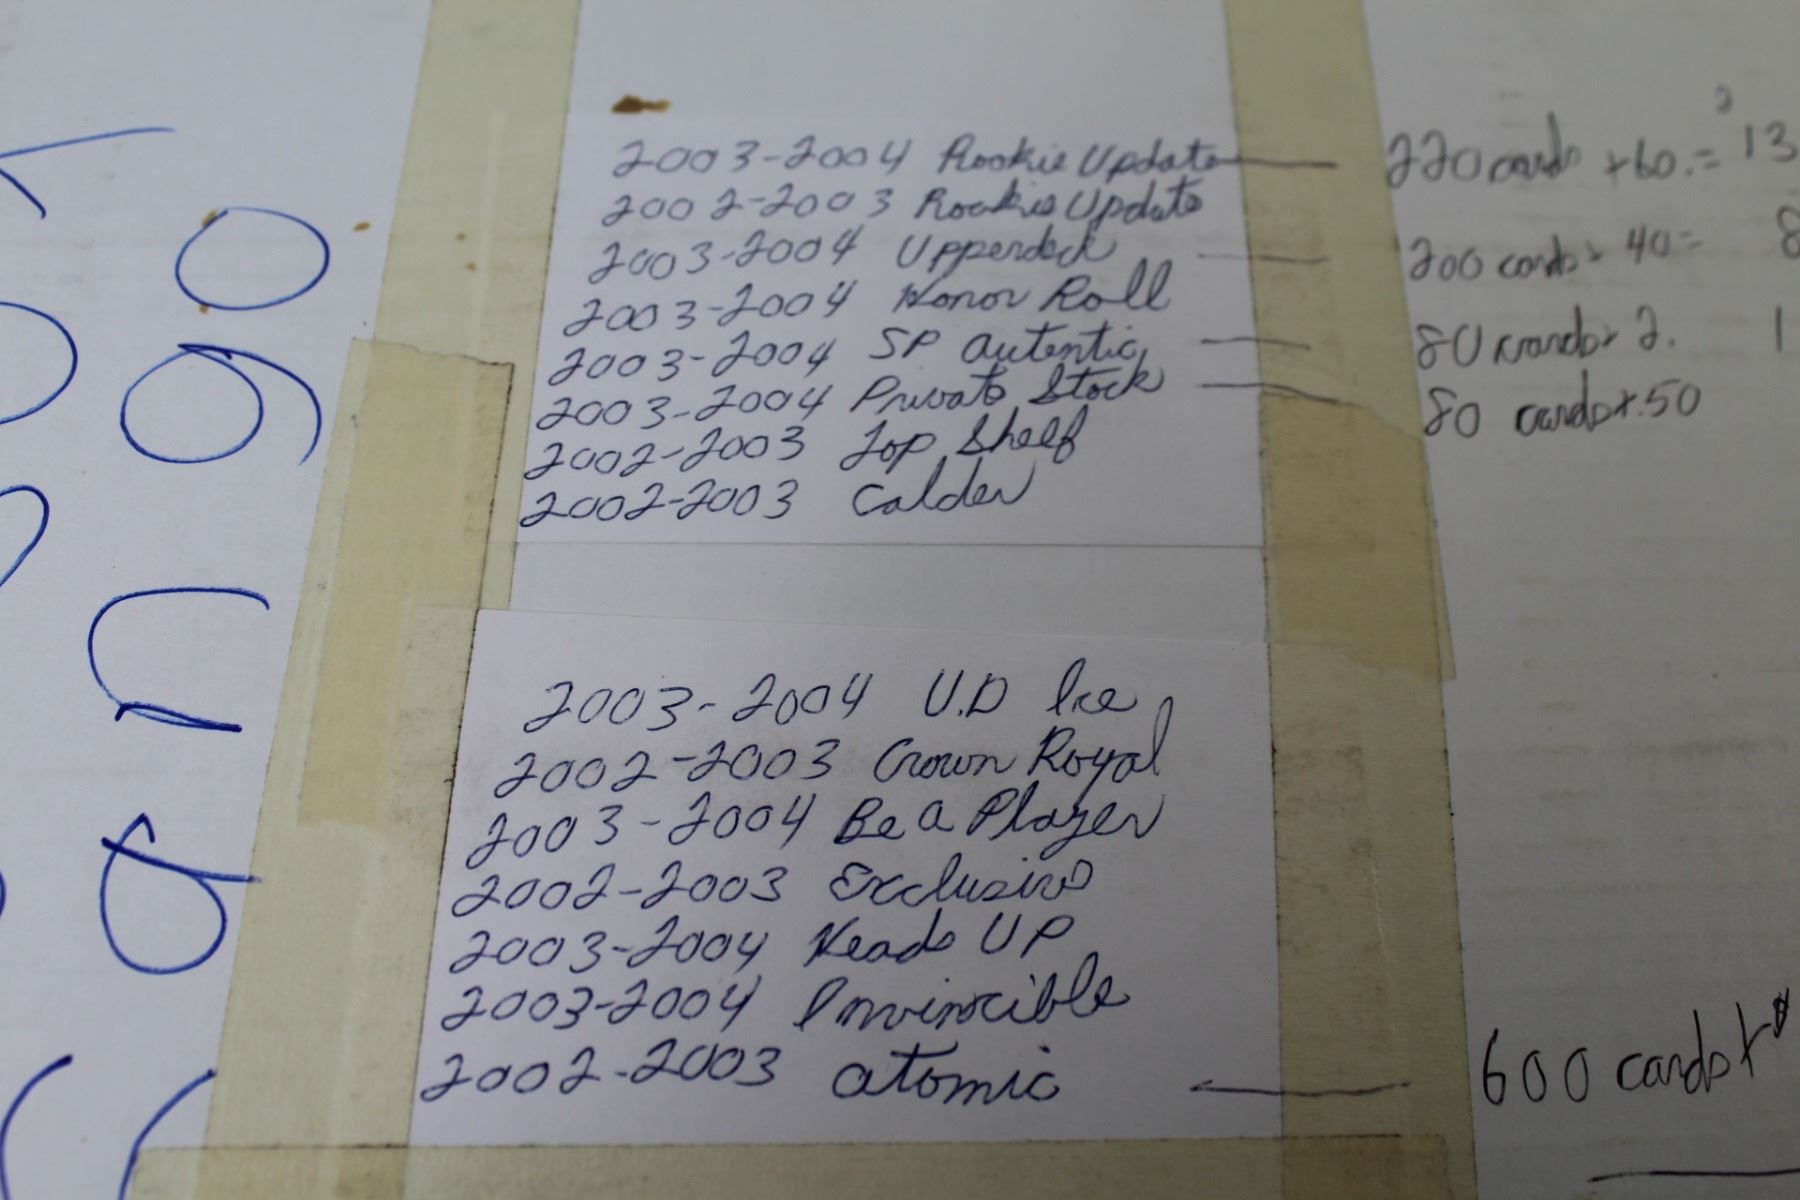 2003-2004 Rookie Update — 220 cards x .60 = 13
2002-2003 Rookie Update
2003-2004 Upperdeck — 200 cards x 40 = 8
2003-2004 Honor Roll
2003-2004 SP autentic — 80 cards x 2. 1
2003-2004 Private Stock — 80 cards x .50
2002-2003 Top Shelf
2002-2003 Calder
2003-2004 U.D Ice
2002-2003 Crown Royal
2003-2004 Be a Player
2002-2003 Exclusive
2003-2004 Heads UP
2003-2004 Invincible
2002-2003 atomic — 600 cards x $